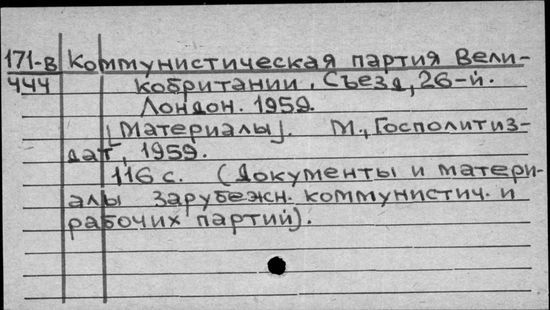 171-В Коммунистическая партия Вели-
444 кобритании. Съезд, 26-й.
Лондон. 1959.
[Материалы]. М., Госполитиз-
дат, 1959.
116 с. (Документы и матери-
алы зарубежн. коммунистич. и
рабочих партий).